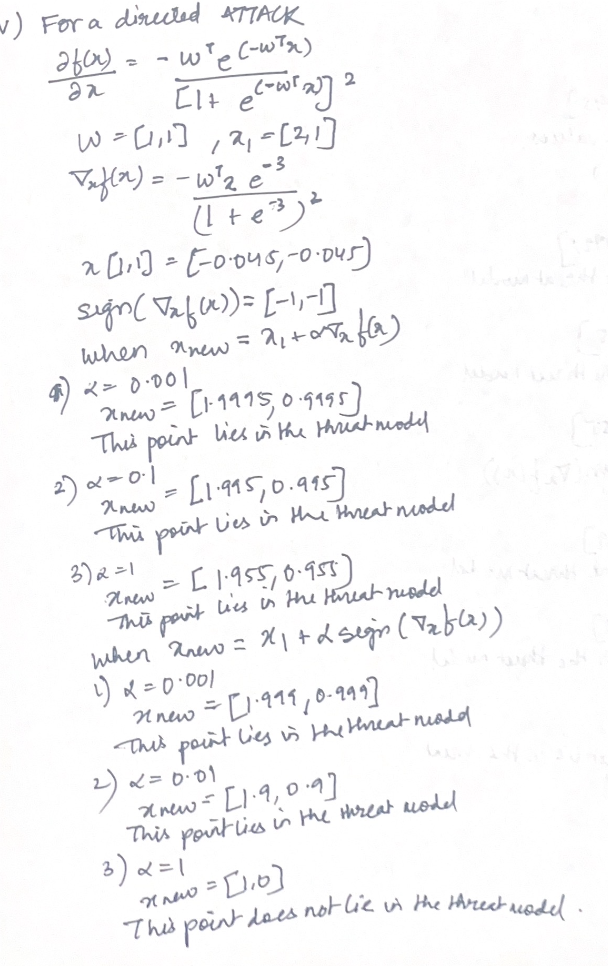 v) For a directed ATTACK
∂f(x)/∂x = - wᵀe^(-wᵀx) / [1+ e^(-wᵀx)]²
w = [1,1] , x₁ = [2,1]
∇ₓf(x) = - wᵀ2 e⁻³ / (1 + e⁻³)²
x [1,1] = [-0.045, -0.045]
sign( ∇ₓf(x)) = [-1,-1]
when xnew = x₁ + α∇ₓf(x)
1) α = 0.001
xnew = [1.9995, 0.9995]
This point lies in the threat model
2) α = 0.1
xnew = [1.995, 0.995]
This point lies in the threat model
3) α = 1
xnew = [1.955, 0.955]
This point lies in the threat model
when xnew = x₁ + α sign (∇ₓf(x))
1) α = 0.001
xnew = [1.999, 0.999]
This point lies in the threat model
2) α = 0.01
xnew = [1.9, 0.9]
This point lies in the threat model
3) α = 1
xnew = [1,0]
This point does not lie in the threat model.